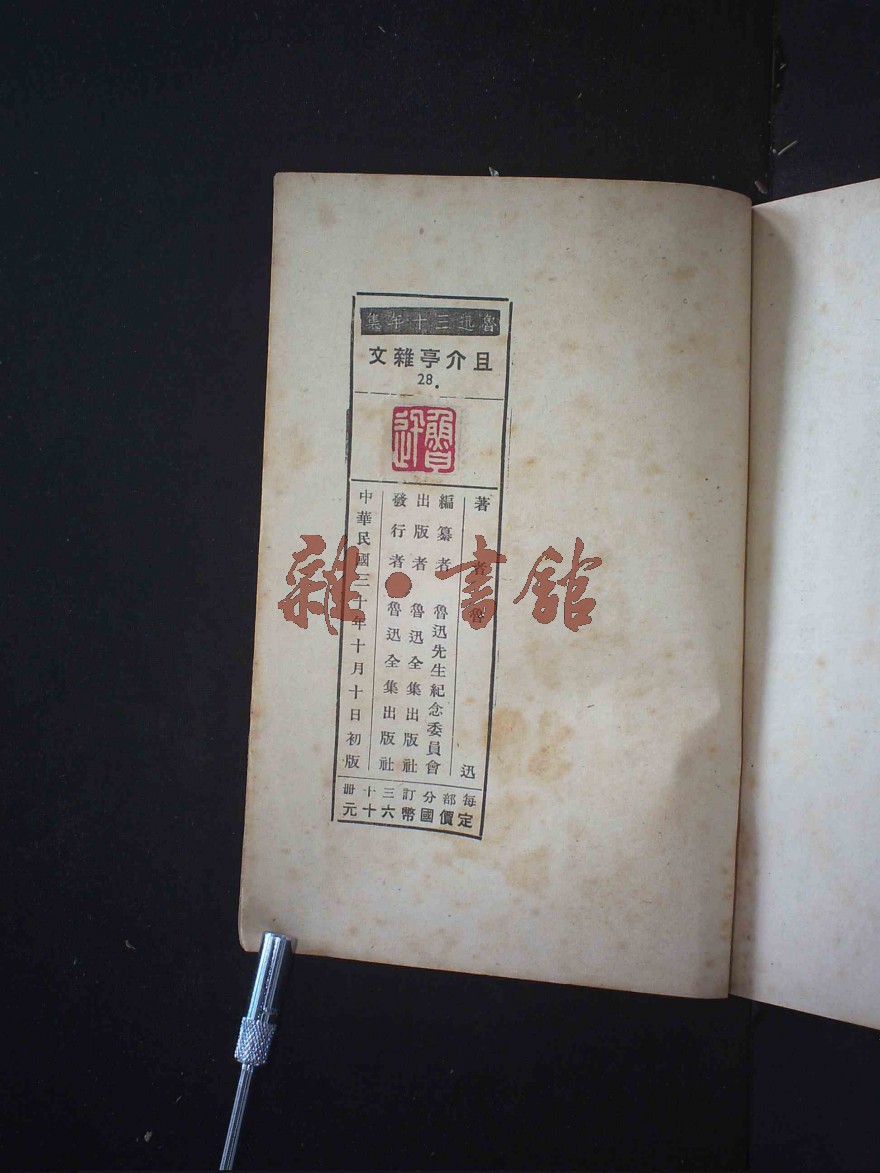 魯迅三十年集
且介亭雜文
28.
魯迅
著者魯迅
編纂者 魯迅先生紀念委員會
出版者 魯迅全集出版社
發行者 魯迅全集出版社
中華民國三十年十月十日初版
每部分訂三十冊
定價國幣六十元
雜·書館